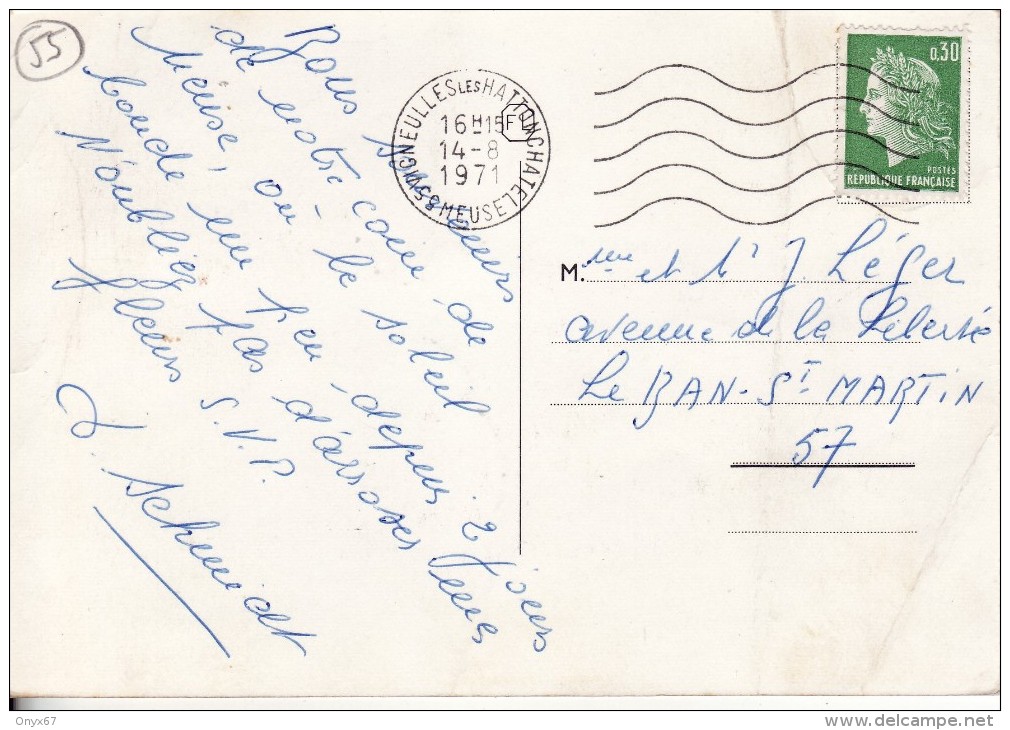 55
Bons souvenirs
de notre coin de
Meuse, où le soleil
boude un peu depuis 2 jours
N'oubliez pas d'arroser
fleurs S.V.P.
J. Schmidt
VIGNEULLES LES HATTONCHATEL
16H15
14-8
1971
55 MEUSE
0,30
POSTES
REPUBLIQUE FRANÇAISE
M.me et Mr J. Léger
avenue de la Liberté
Le BAN-ST MARTIN
57
Onyx67
delcampe.net